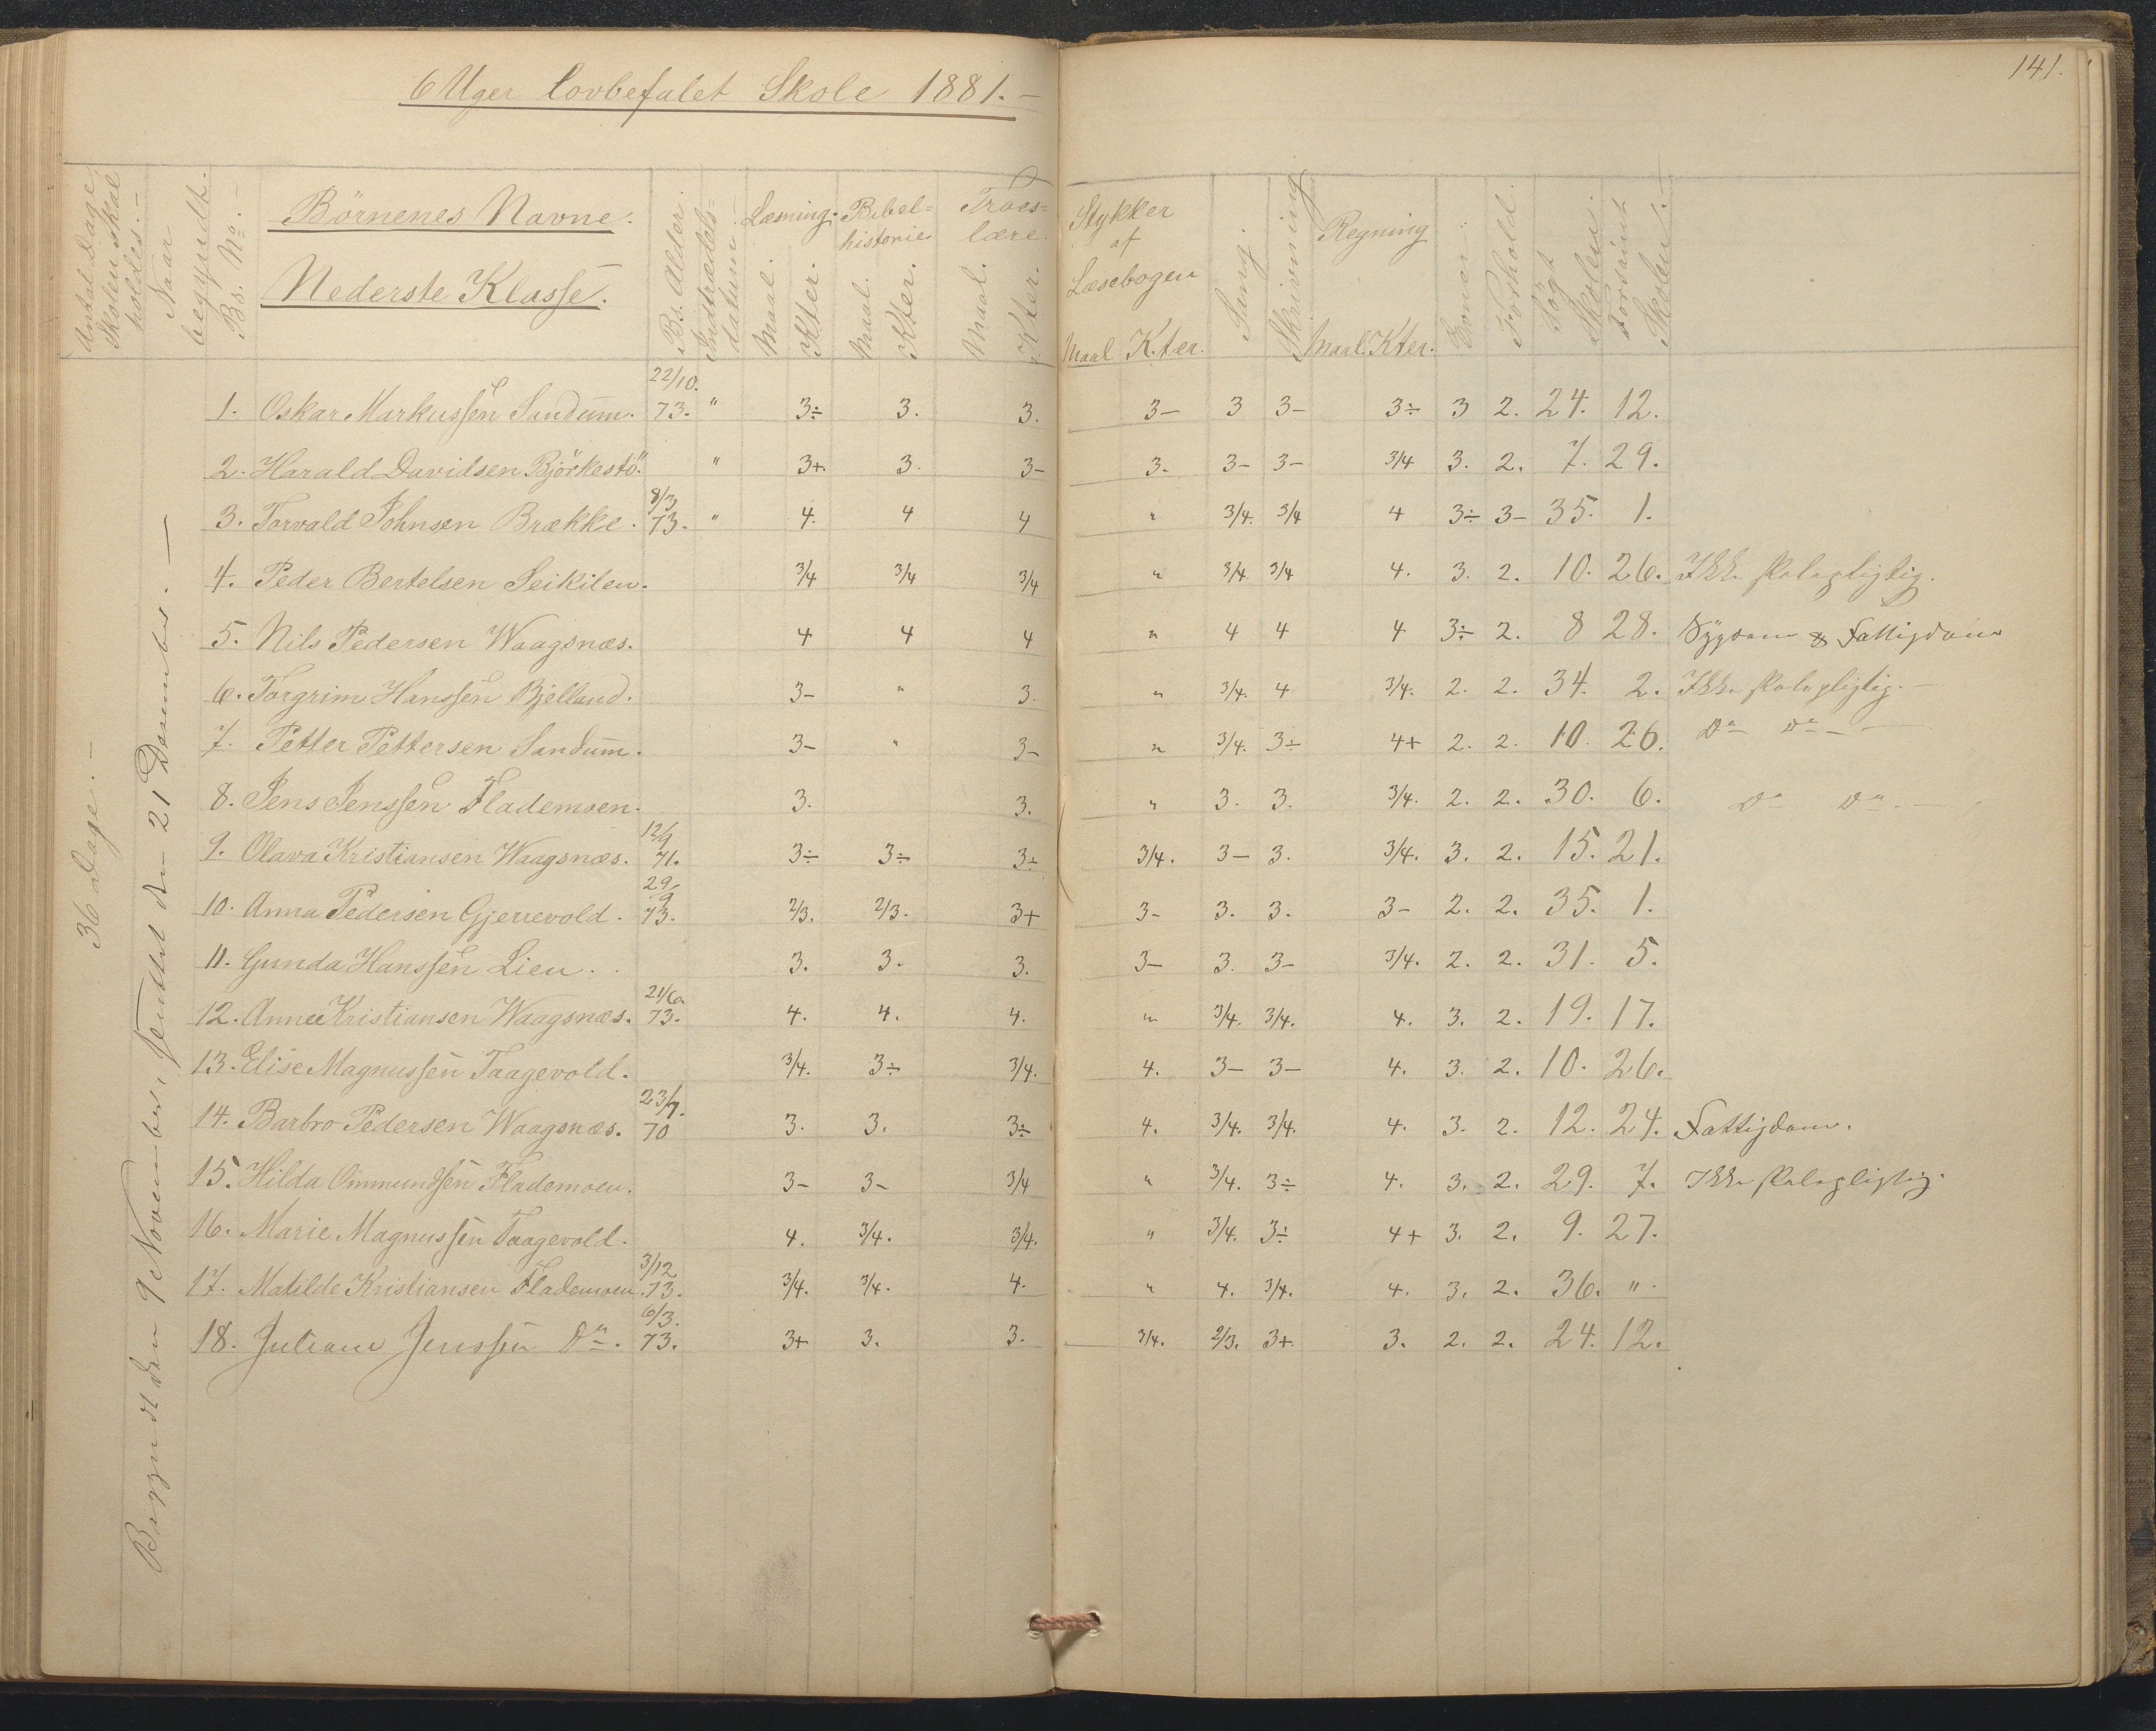 6 Uger lovbefalet Skole 1881.-
141.
Antal Dage Skolen Skal holdes.-
Naar begyndt.
Bs. No.-
Börnenes Navne.
Nederste Klasse.
Bs. Alder.
Indtrædelsdatum.
Læsning. Maal. Kter.
Bibelhistorie Maal. Kter.
Troeslære. Maal. Kter.
Stykker af Læsebogen Maal Kter.
Sang.
Skrivning
Regning Maal. Kter.
Evner.
Forhold.
Sögt Skolen.
Forsömt Skolen.-
36 Dage.-
Begyndt den 9 November, sluttet den 21 December.-
1. Oskar Markussen Sandum. 22/10. 73. " 3÷ 3. 3. 3- 3 3- 3÷ 3 2. 24. 12.
2. Harald Davidsen Björkestö. " 3+. 3. 3- 3. 3- 3- 3/4 3. 2. 7. 29.
3. Torvald Johnsen Brække. 8/3 73. " 4. 4 4 " 3/4. 3/4 4 3÷ 3- 35. 1.
4. Peder Bertelsen Seikilen. 3/4 3/4 3/4 " 3/4. 3/4 4. 3. 2. 10. 26. Ikke skolepligtig.
5. Nils Pedersen Waagsnæs. 4 4 4 " 4 4 4 3÷ 2. 8 28. Sygdom & Fattigdom
6. Torgrim Hanssen Bjelland. 3- " 3. " 3/4. 4 3/4. 2. 2. 34. 2. Ikke skolepligtig.-
7. Petter Pettersen Sandum. 3- " 3- " 3/4. 3÷ 4+ 2. 2. 10. 26. Do Do -
8. Jens Jenssen Flademoen. 3. 3. " 3. 3. 3/4. 2. 2. 30. 6. Do Do.
9. Olava Kristiansen Waagsnæs. 12/9 71. 3÷ 3÷ 3÷ 3/4. 3- 3. 3/4. 3. 2. 15. 21.
10. Anna Pedersen Gjerrevold. 29/9 73. 2/3. 2/3. 3+ 3- 3. 3. 3- 2. 2. 35. 1.
11. Gunda Hanssen Lien. 3. 3. 3. 3- 3. 3- 3/4. 2. 2. 31. 5.
12. Anne Kristiansen Waagsnæs. 21/6. 73. 4. 4. 4. " 3/4. 3/4. 4. 3. 2. 19. 17.
13. Elise Magnussen Taagevold. 3/4. 3÷ 3/4. 4. 3- 3- 4. 3. 2. 10. 26.
14. Barbro Pedersen Waagsnæs. 23/7. 70 3. 3. 3÷ 4. 3/4. 3/4. 4. 3. 2. 12. 24. Fattigdom.
15. Hilda Ommundsen Flademoen. 3- 3- 3/4 " 3/4. 3÷ 4. 3. 2. 29. 7. Ikke skolepligtig.
16. Marie Magnussen Taagevold. 4. 3/4. 3/4. " 3/4. 3÷ 4+ 3. 2. 9. 27.
17. Matilde Kristiansen Flademoen. 3/12 73. 3/4. 3/4. 4. " 4. 3/4. 4. 3. 2. 36. "
18. Juliane Jenssen Do. 6/3. 73. 3+ 3. 3. 3/4. 2/3. 3+. 3. 2. 2. 24. 12.